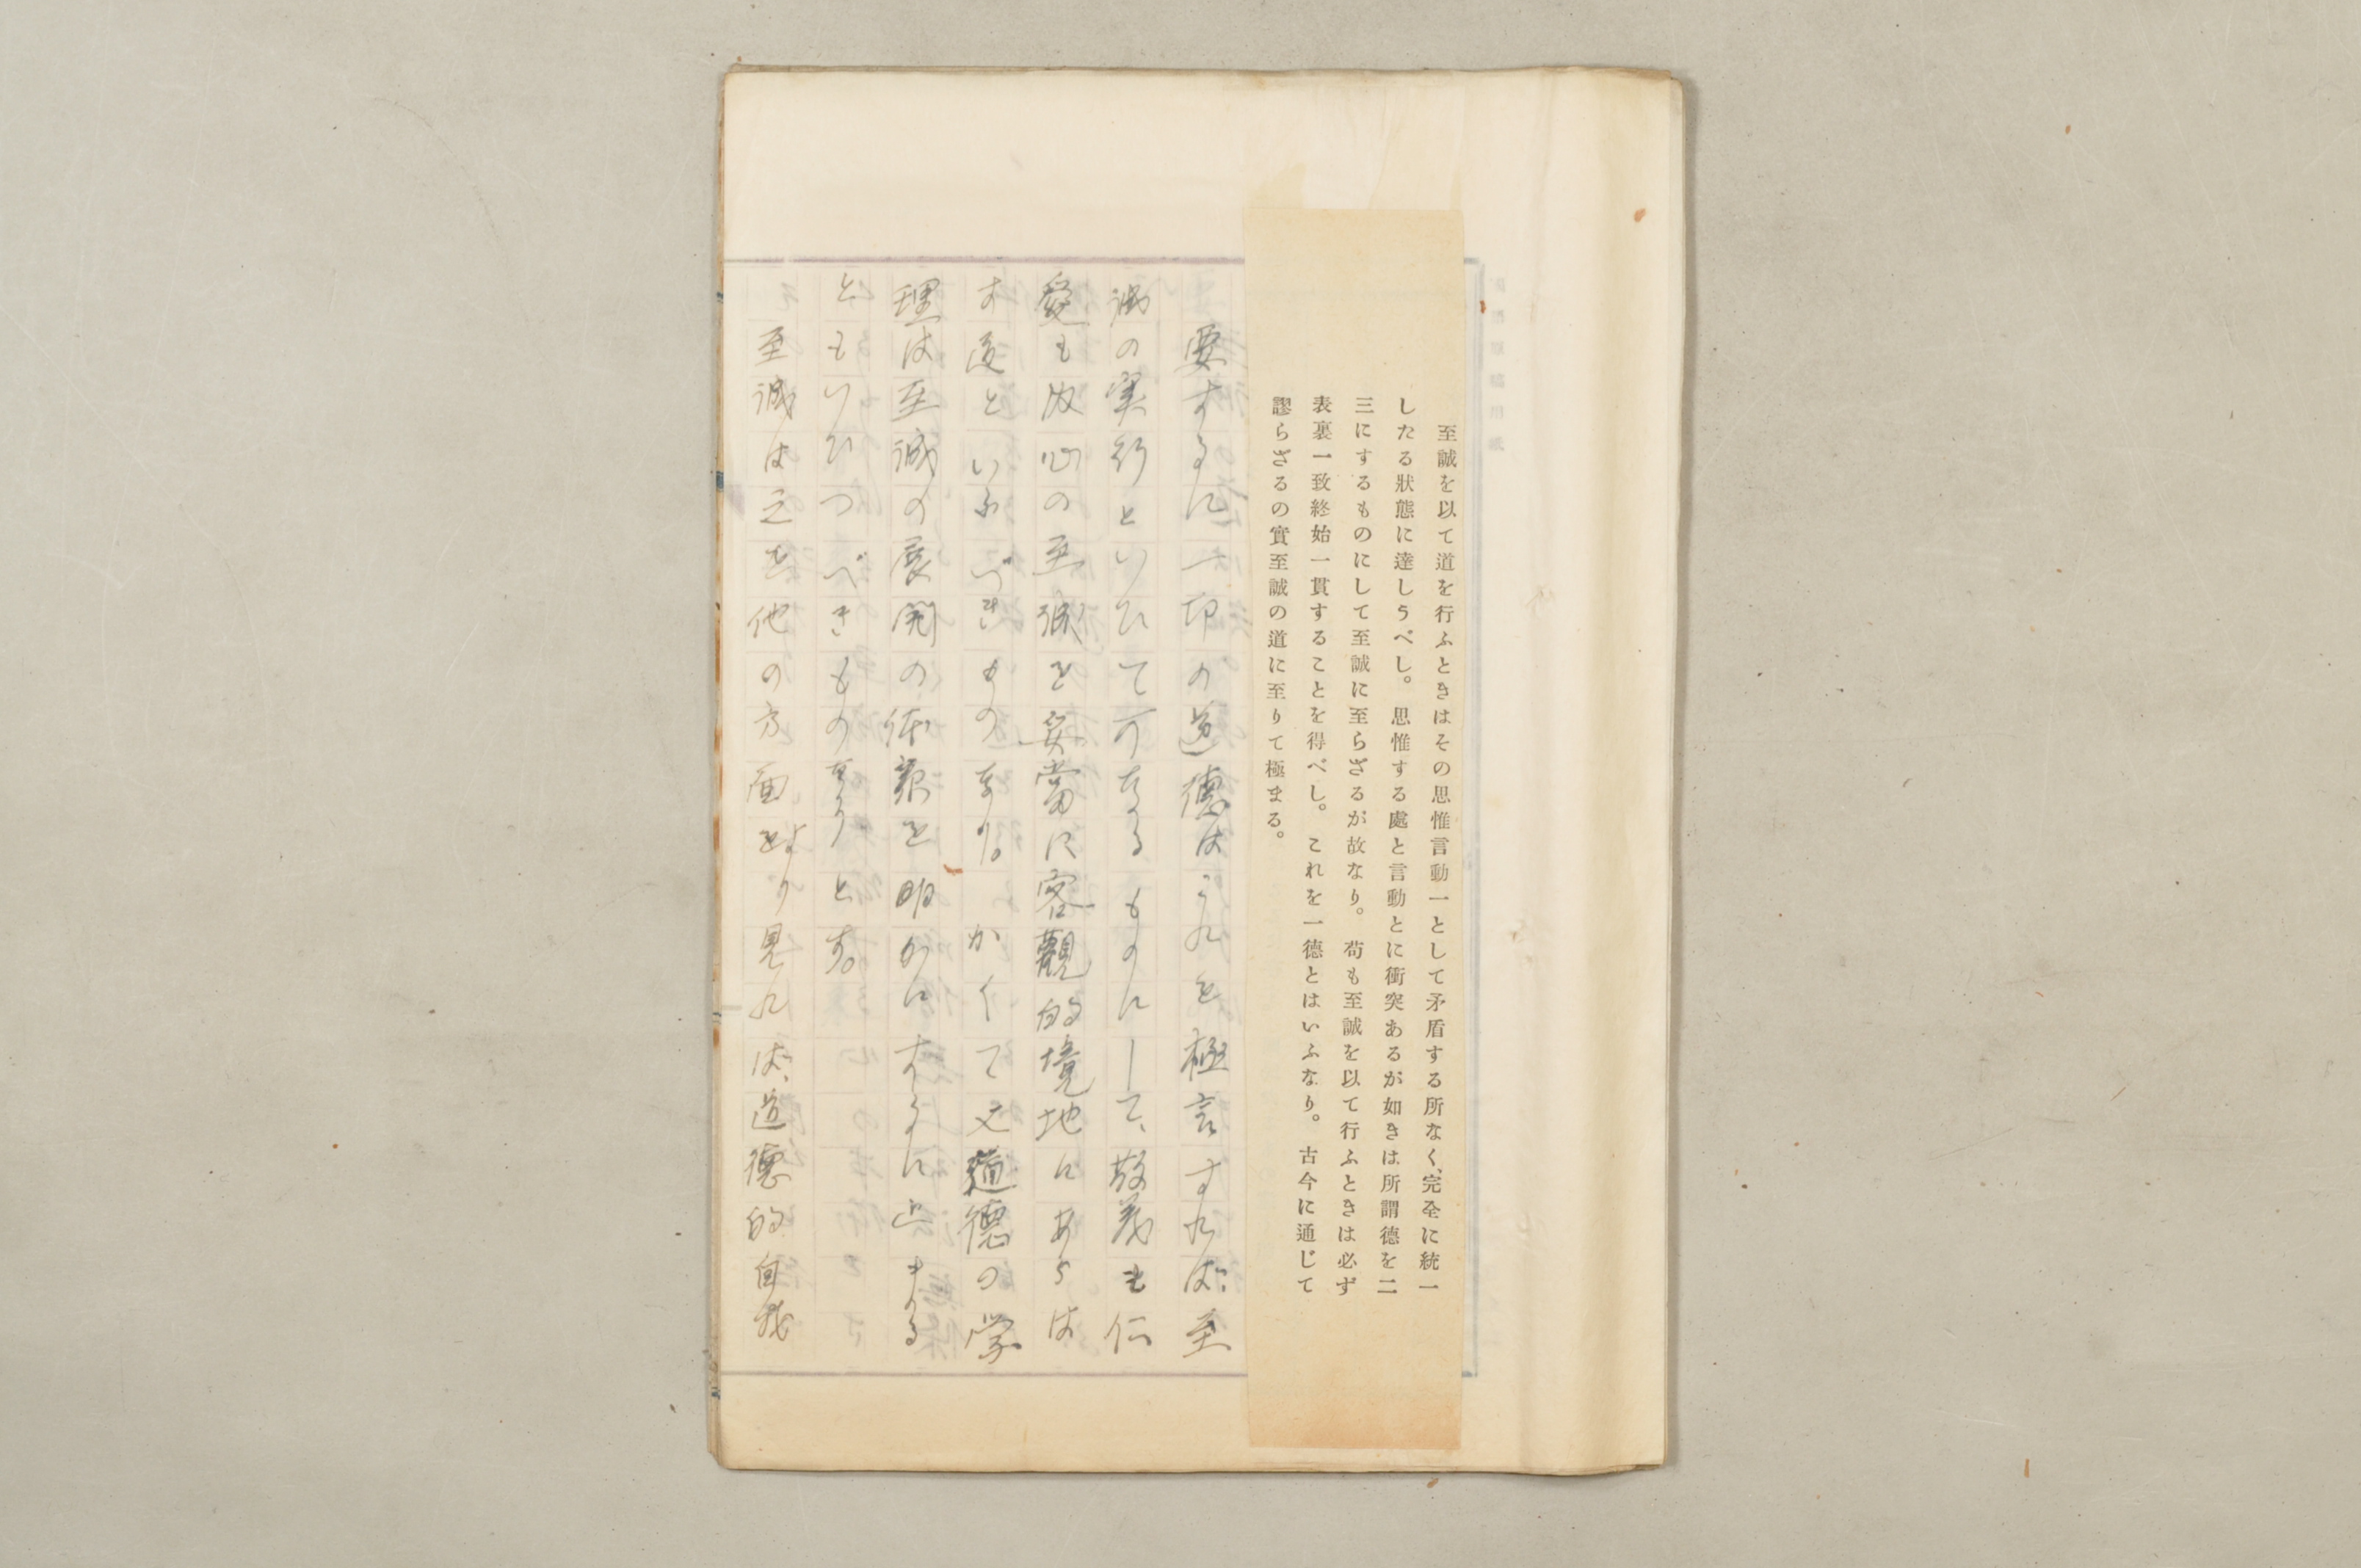 至誠を以て道を行ふときはその思惟言動一として矛盾する所なく、完全に統一
したる狀態に達しうべし。思惟する處と言動とに衝突あるが如きは所謂德を二
三にするものにして至誠に至らざるが故なり。苟も至誠を以て行ふときは必ず
表裏一致終始一貫することを得べし。これを一德とはいふなり。古今に通じて
謬らざるの實至誠の道に至りて極まる。
要するに一切の道德はこれを極言すれば、至
誠の実行といひて可なるものにして、敬義も仁
愛も改心の至誠を妥當に客觀的境地にあらは
す道といふべきものなり。かくて又道德の学
理は至誠の展開の体裁を明かにするに止まる
ともいひつべきものなりとす。
至誠は之を他の方面より見れば、道德的自我